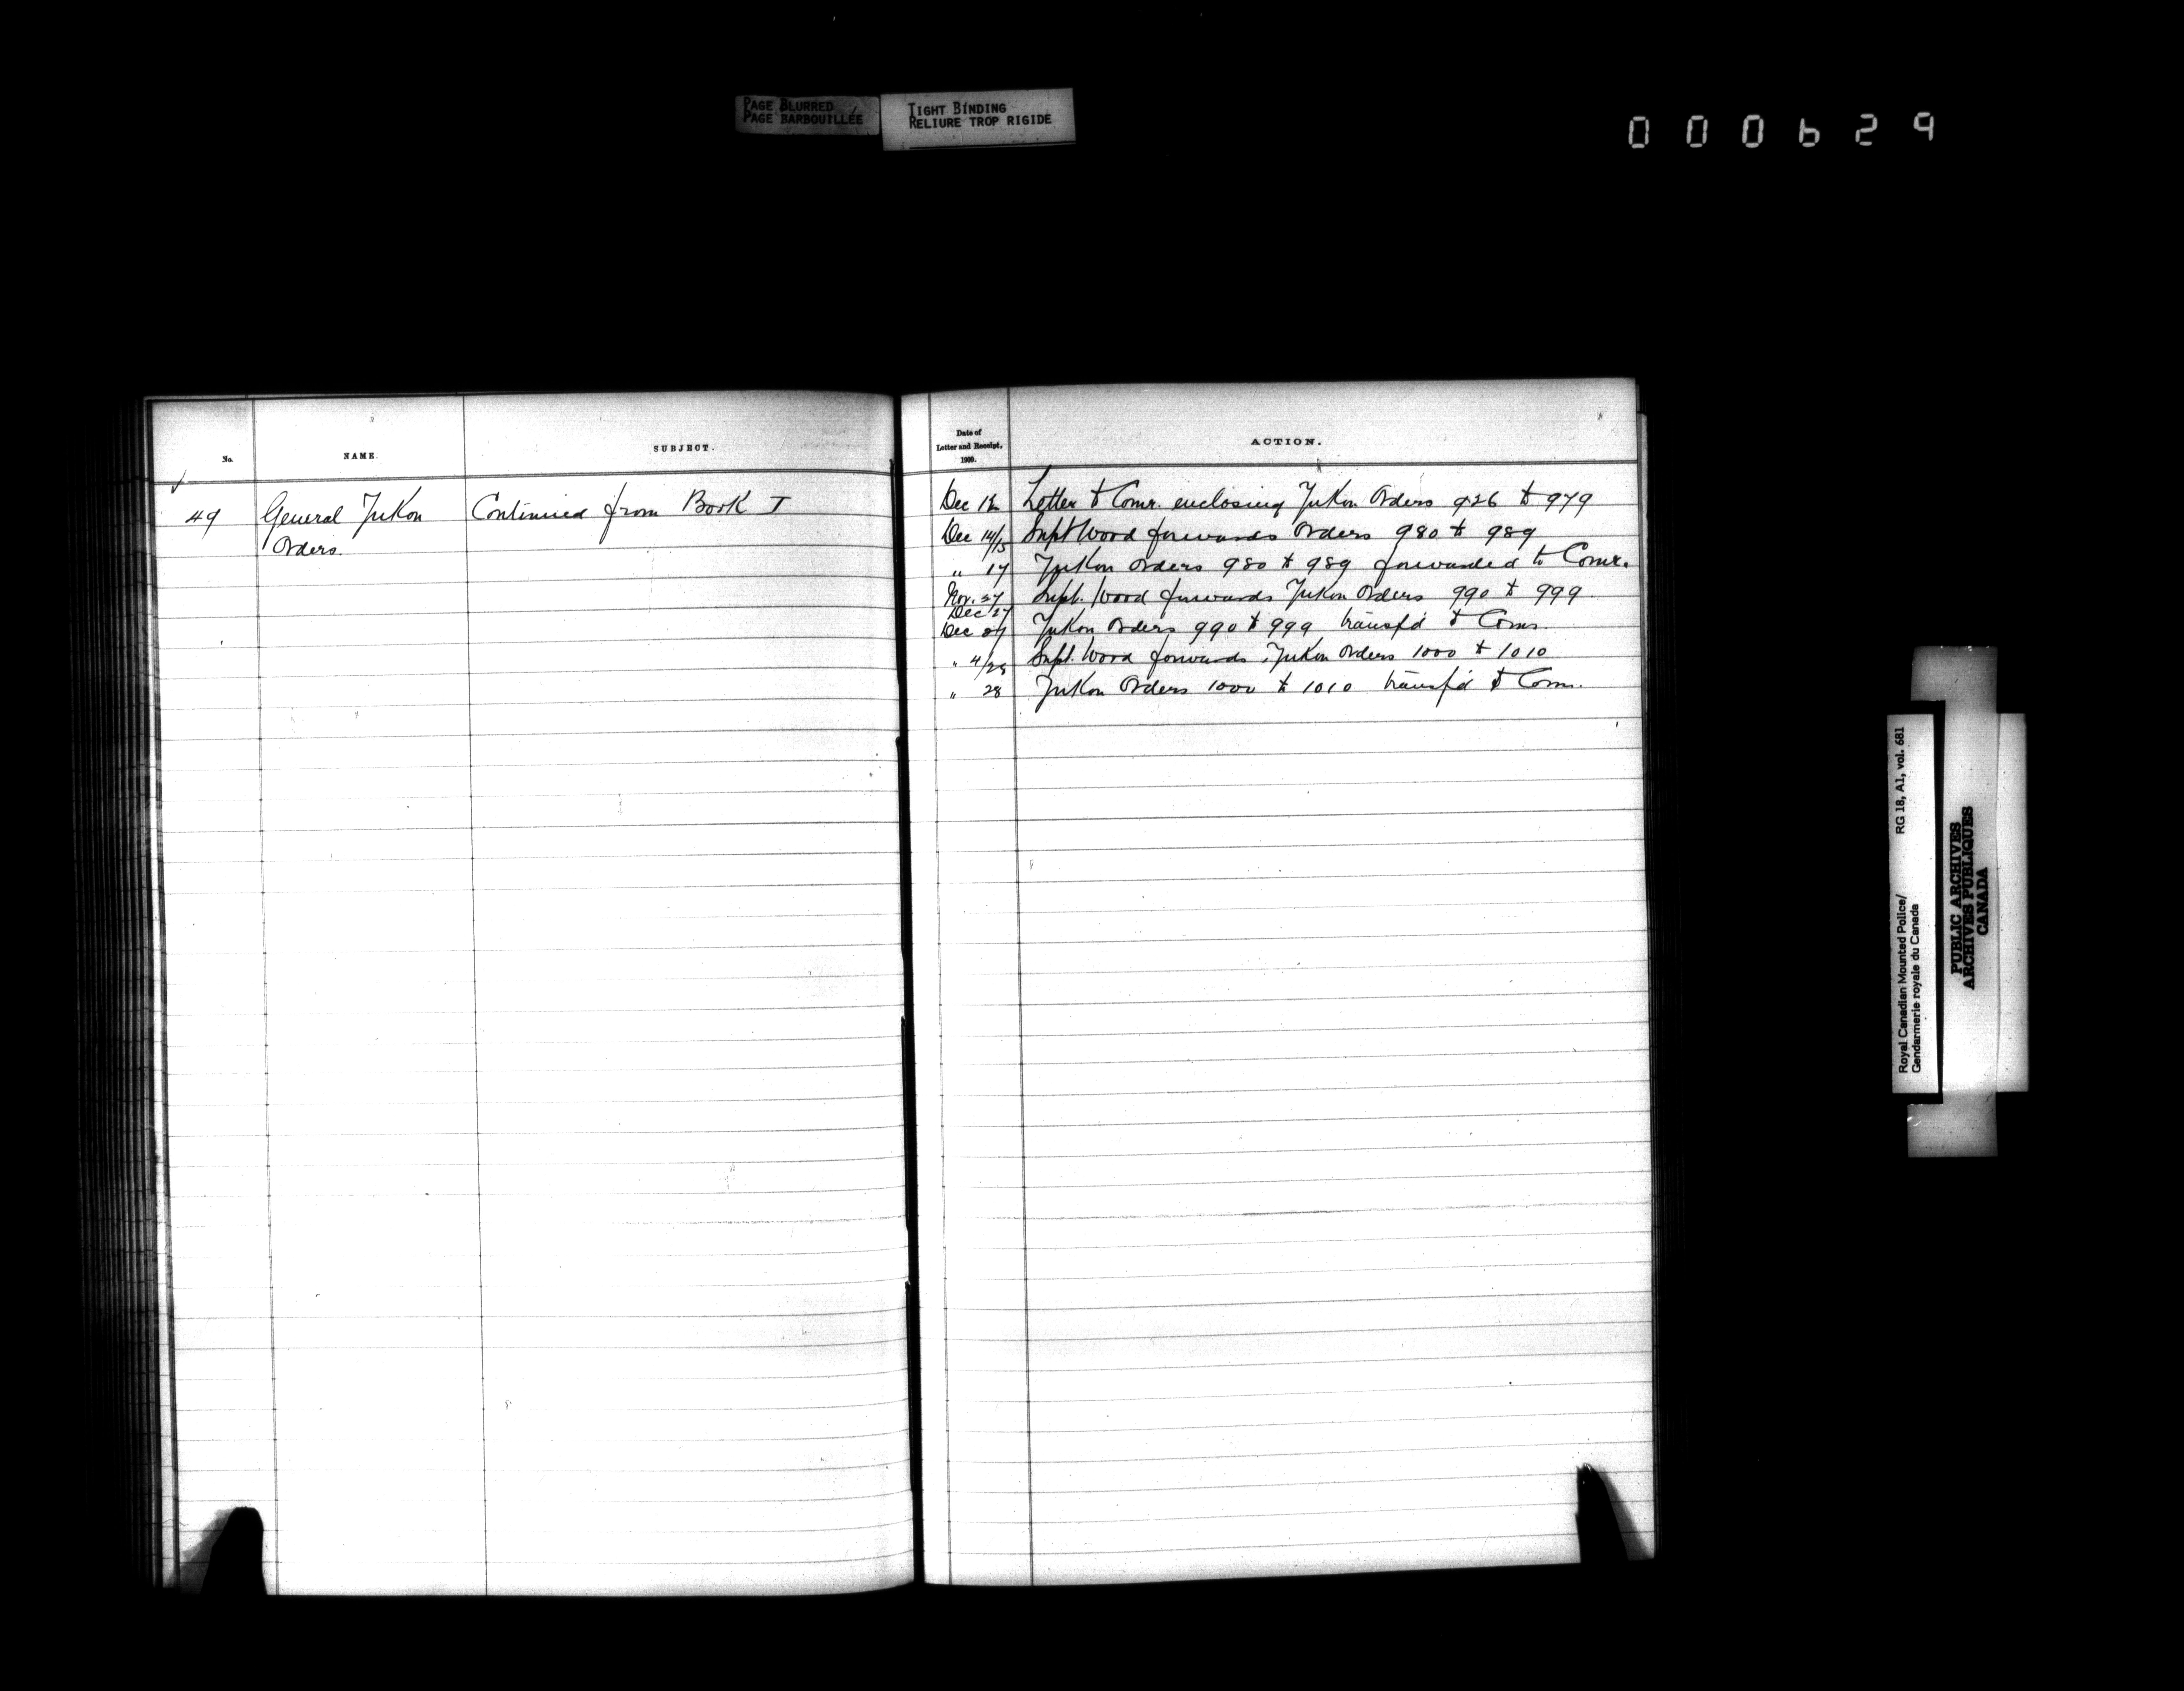 PAGE BLURRED
PAGE BARBOUILLÉE
TIGHT BINDING
RELIURE TROP RIGIDE
000629
No.
NAME.
SUBJECT.
Date of
Letter and Receipt,
1900.
ACTION.
49 General Yukon Continued from Book I
Orders.
Dec 12 Letter to Comr. enclosing Yukon Orders 926 to 979
Dec 14/15 Supt Wood forwards Orders 980 to 989
" 17 Yukon Orders 980 to 989 forwarded to Comr.
Nov. 27 Supt. Wood forwards Yukon Orders 990 to 999
Dec 27
Dec 27 Yukon Orders 990 to 999 transf'd to Comr.
" 4/28 Supt. Wood forwards Yukon Orders 1000 to 1010
" 28 Yukon Orders 1000 to 1010 transf'd to Comr.
Royal Canadian Mounted Police/ RG 18, A1, vol. 681
Gendarmerie royale du Canada
PUBLIC ARCHIVES
ARCHIVES PUBLIQUES
CANADA